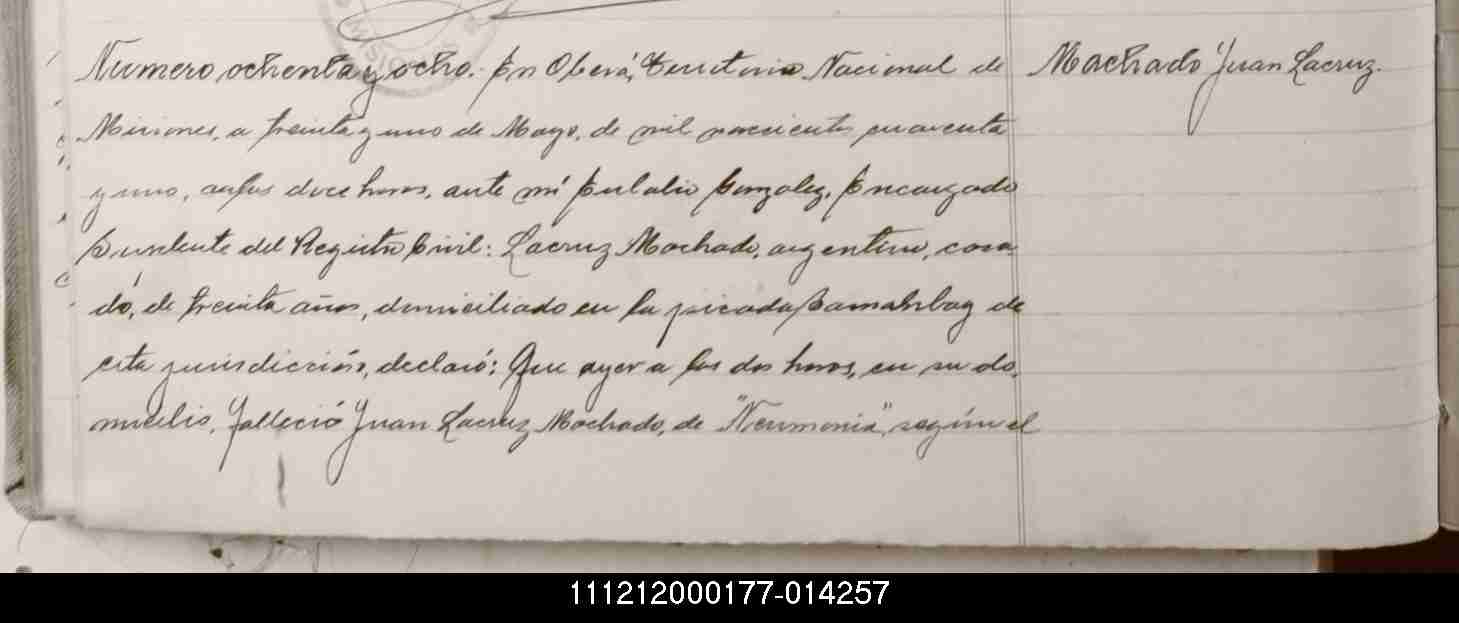 MISIONES
Numero ochenta y ocho. En Oberá, Territorio Nacional de
Machado Juan Lacruz.
Misiones, a treinta y uno de Mayo, de mil novecientos cuarenta
y uno, a las doce horas, ante mí Eulalio Gonzalez, Encargado
Suplente del Registro Civil: Lacruz Machado, argentino, casa-
do, de treinta años, domiciliado en la picada de
esta jurisdicción, declaró: Que ayer a las dos horas, en su do-
micilio, falleció Juan Lacruz Machado, de "Neumonia", según el
111212000177-014257